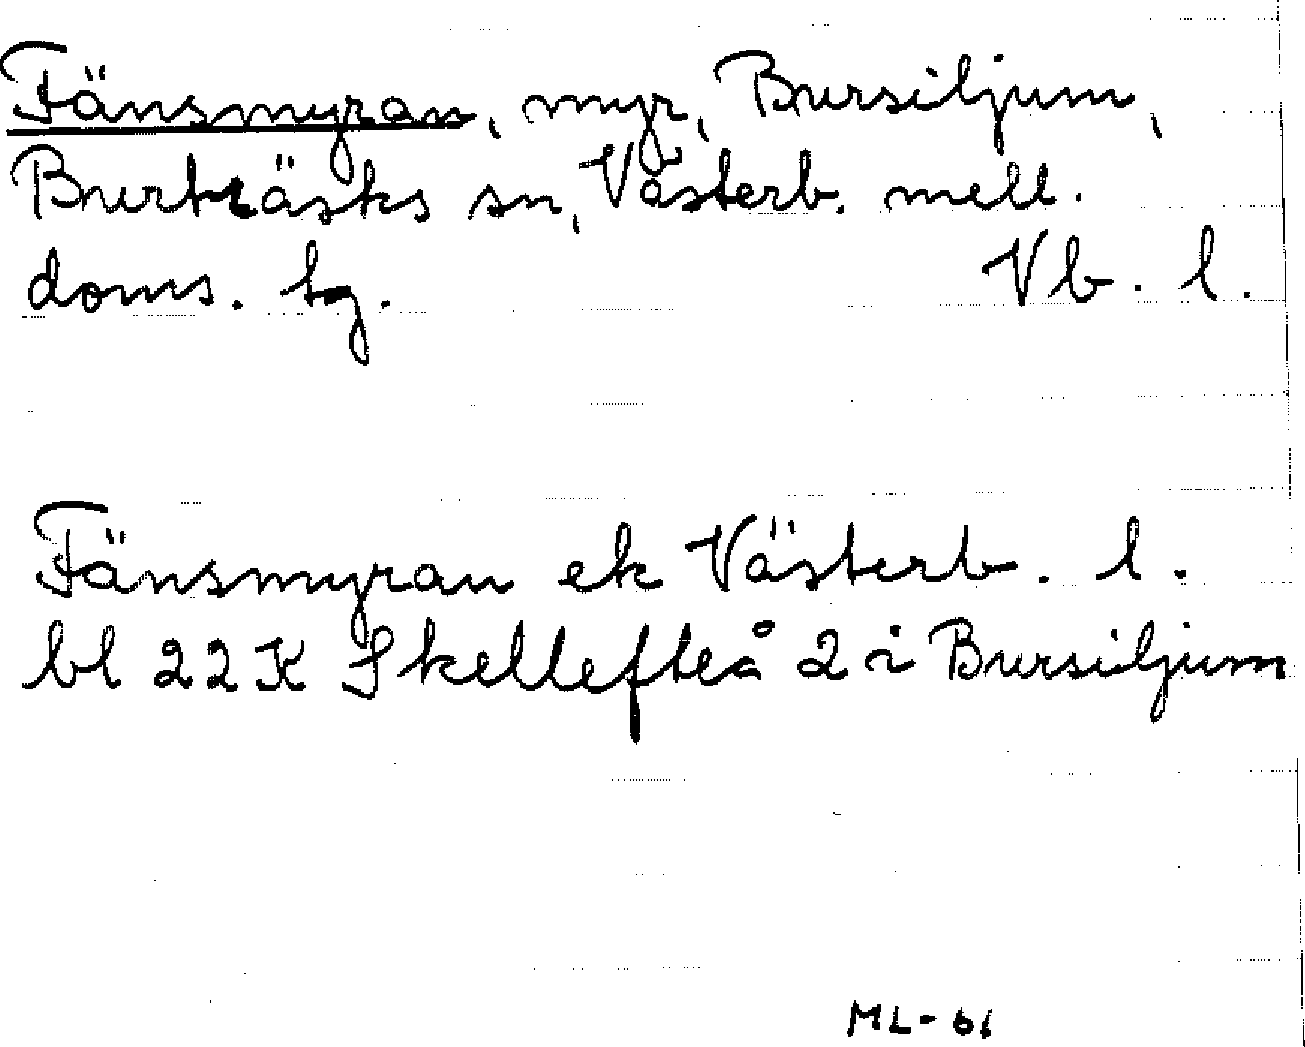 Fänsmyran, myr, Bursiljum,
Burträsks sn, Västerb. mell.
doms. tg. Vb. l.
Fänsmyran ek Västerb. l.
bl 22 K Skellefteå 2 i Bursiljum
ML-61